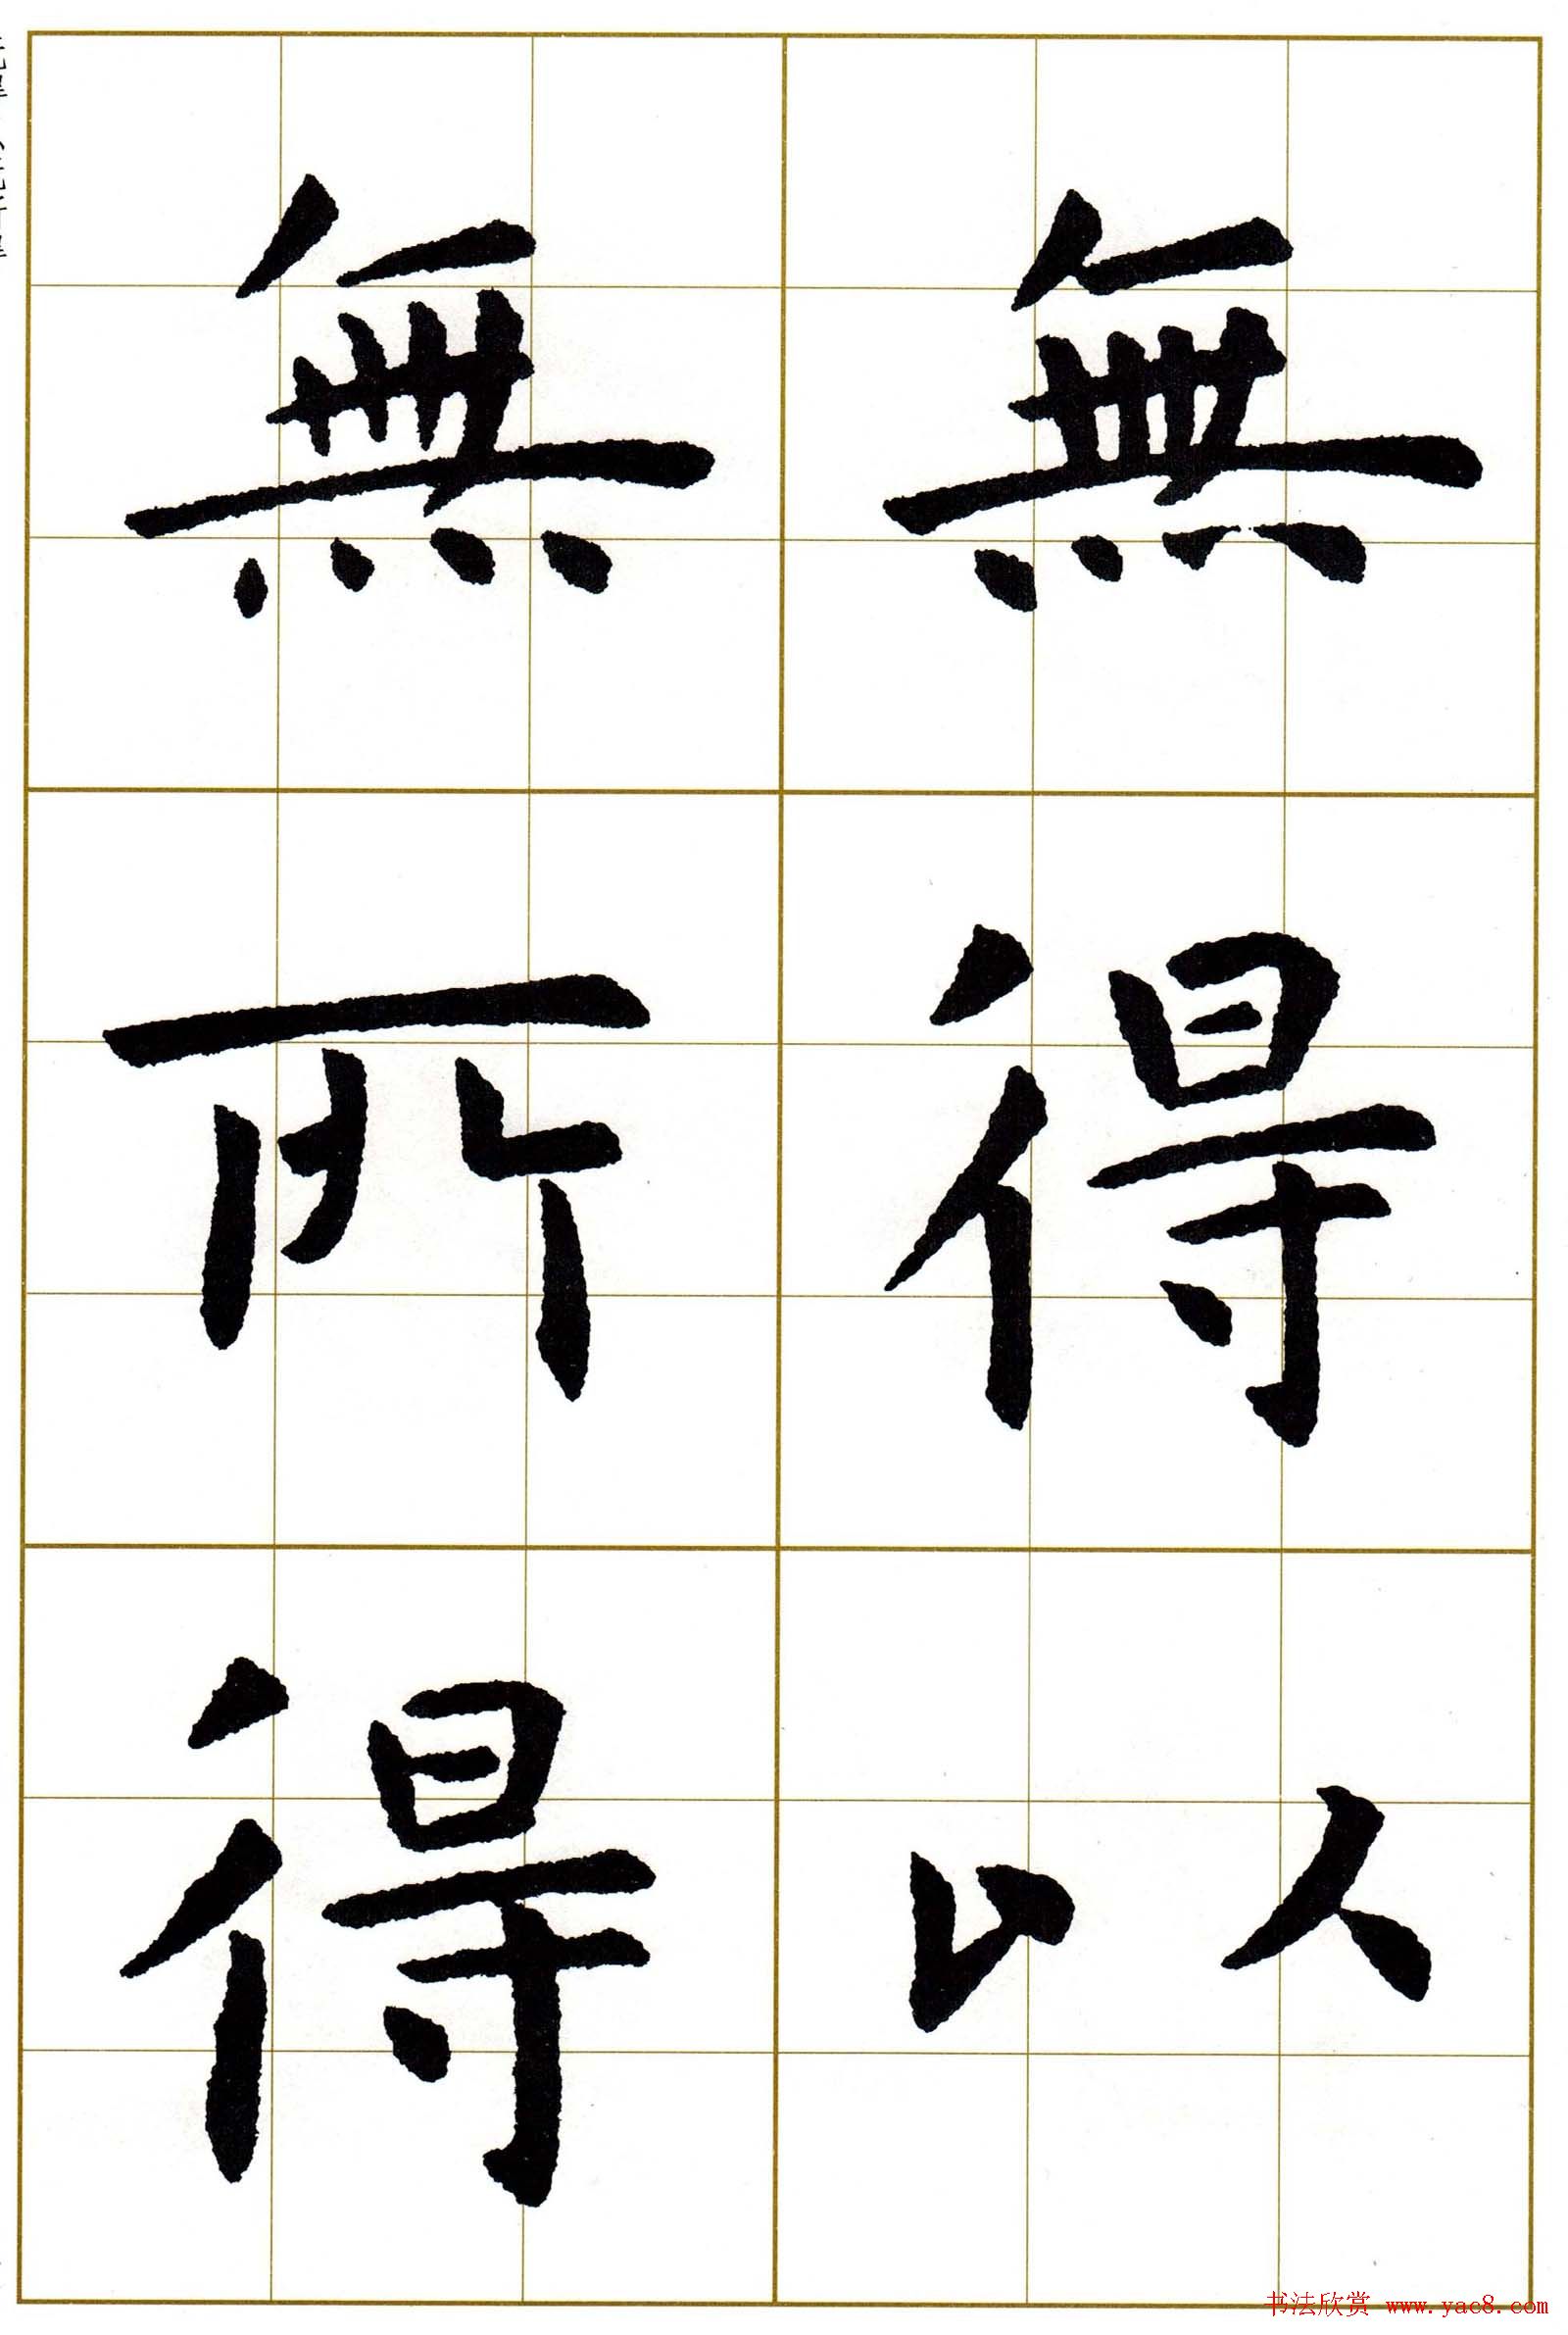 無得以
無所得
书法欣赏 www.yac8.com